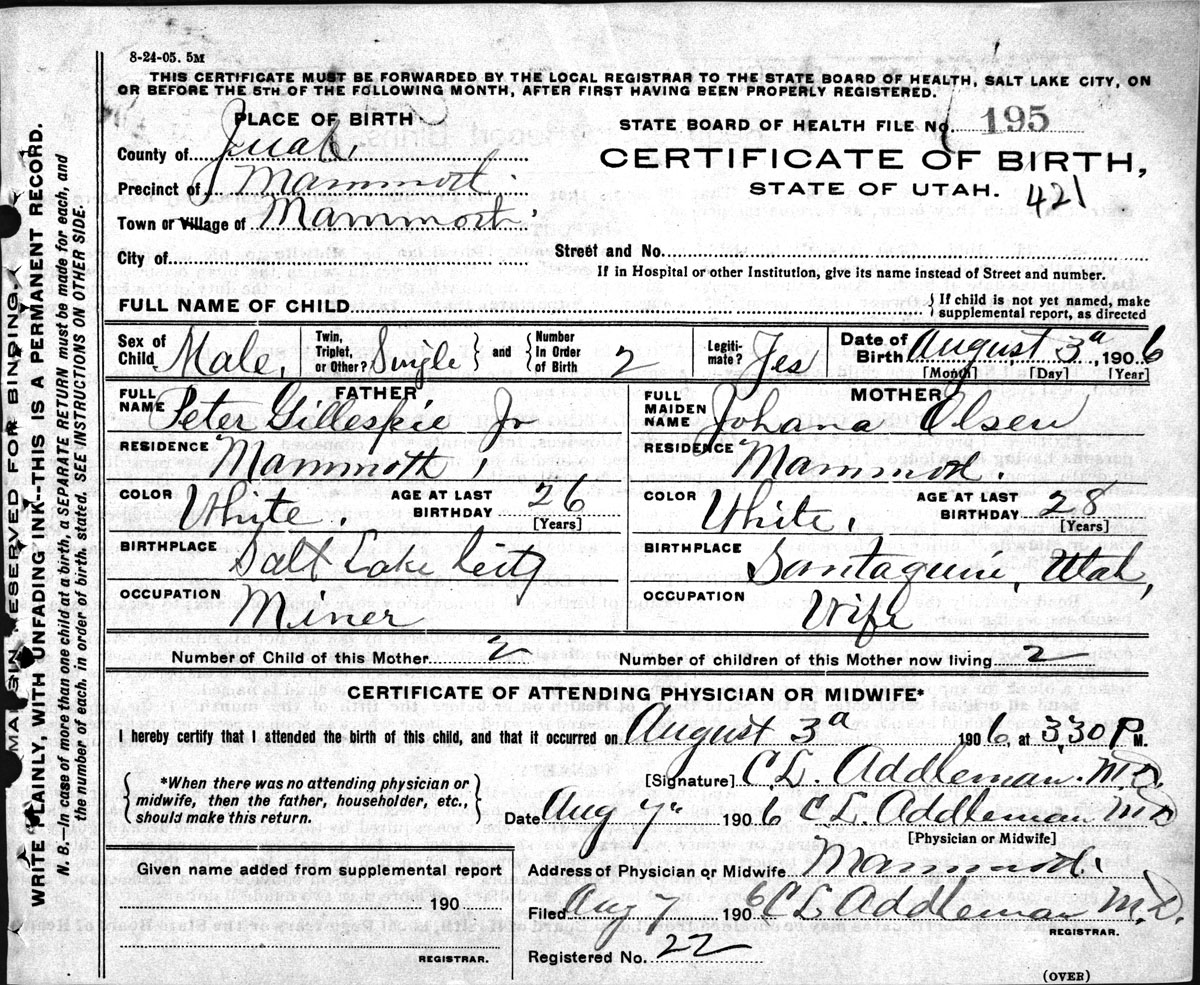 8-24-05. 5M
THIS CERTIFICATE MUST BE FORWARDED BY THE LOCAL REGISTRAR TO THE STATE BOARD OF HEALTH, SALT LAKE CITY, ON
OR BEFORE THE 5TH OF THE FOLLOWING MONTH, AFTER FIRST HAVING BEEN PROPERLY REGISTERED.
PLACE OF BIRTH
County of Juab.
Precinct of Mammoth.
Town or Village of Mammoth.
City of
STATE BOARD OF HEALTH FILE No. 195
CERTIFICATE OF BIRTH,
STATE OF UTAH. 421
Street and No.
If in Hospital or other Institution, give its name instead of Street and number.
FULL NAME OF CHILD
If child is not yet named, make
supplemental report, as directed
Sex of Child Male.
Twin, Triplet, or Other? Single and Number In Order of Birth 2
Legiti-mate? Yes
Date of Birth August 3d 1906
[Month] [Day] [Year]
FATHER
FULL NAME Peter Gilleskie Jr
RESIDENCE Mammoth,
COLOR White. AGE AT LAST BIRTHDAY 26
[Years]
BIRTHPLACE Salt Lake City
OCCUPATION Miner
MOTHER
FULL MAIDEN NAME Johana Olsen
RESIDENCE Mammoth.
COLOR White. AGE AT LAST BIRTHDAY 28
[Years]
BIRTHPLACE Santaquin, Utah,
OCCUPATION Wife
Number of Child of this Mother 2 Number of children of this Mother now living 2
CERTIFICATE OF ATTENDING PHYSICIAN OR MIDWIFE*
I hereby certify that I attended the birth of this child, and that it occurred on August 3d 1906, at 3,30 P M.
*When there was no attending physician or
midwife, then the father, householder, etc.,
should make this return.
[Signature] C L. Addleman. M.D.
Date Aug 7" 1906 C L. Addleman M D
[Physician or Midwife]
Given name added from supplemental report
190
REGISTRAR.
Address of Physician or Midwife Mammoth.
Filed Aug 7 1906 C L Addleman M.D.
REGISTRAR.
Registered No. 22
(OVER)
MARGIN RESERVED FOR BINDING.
WRITE PLAINLY, WITH UNFADING INK--THIS IS A PERMANENT RECORD.
N. B.--In case of more than one child at a birth, a SEPARATE RETURN must be made for each, and
the number of each, in order of birth, stated. SEE INSTRUCTIONS ON OTHER SIDE.